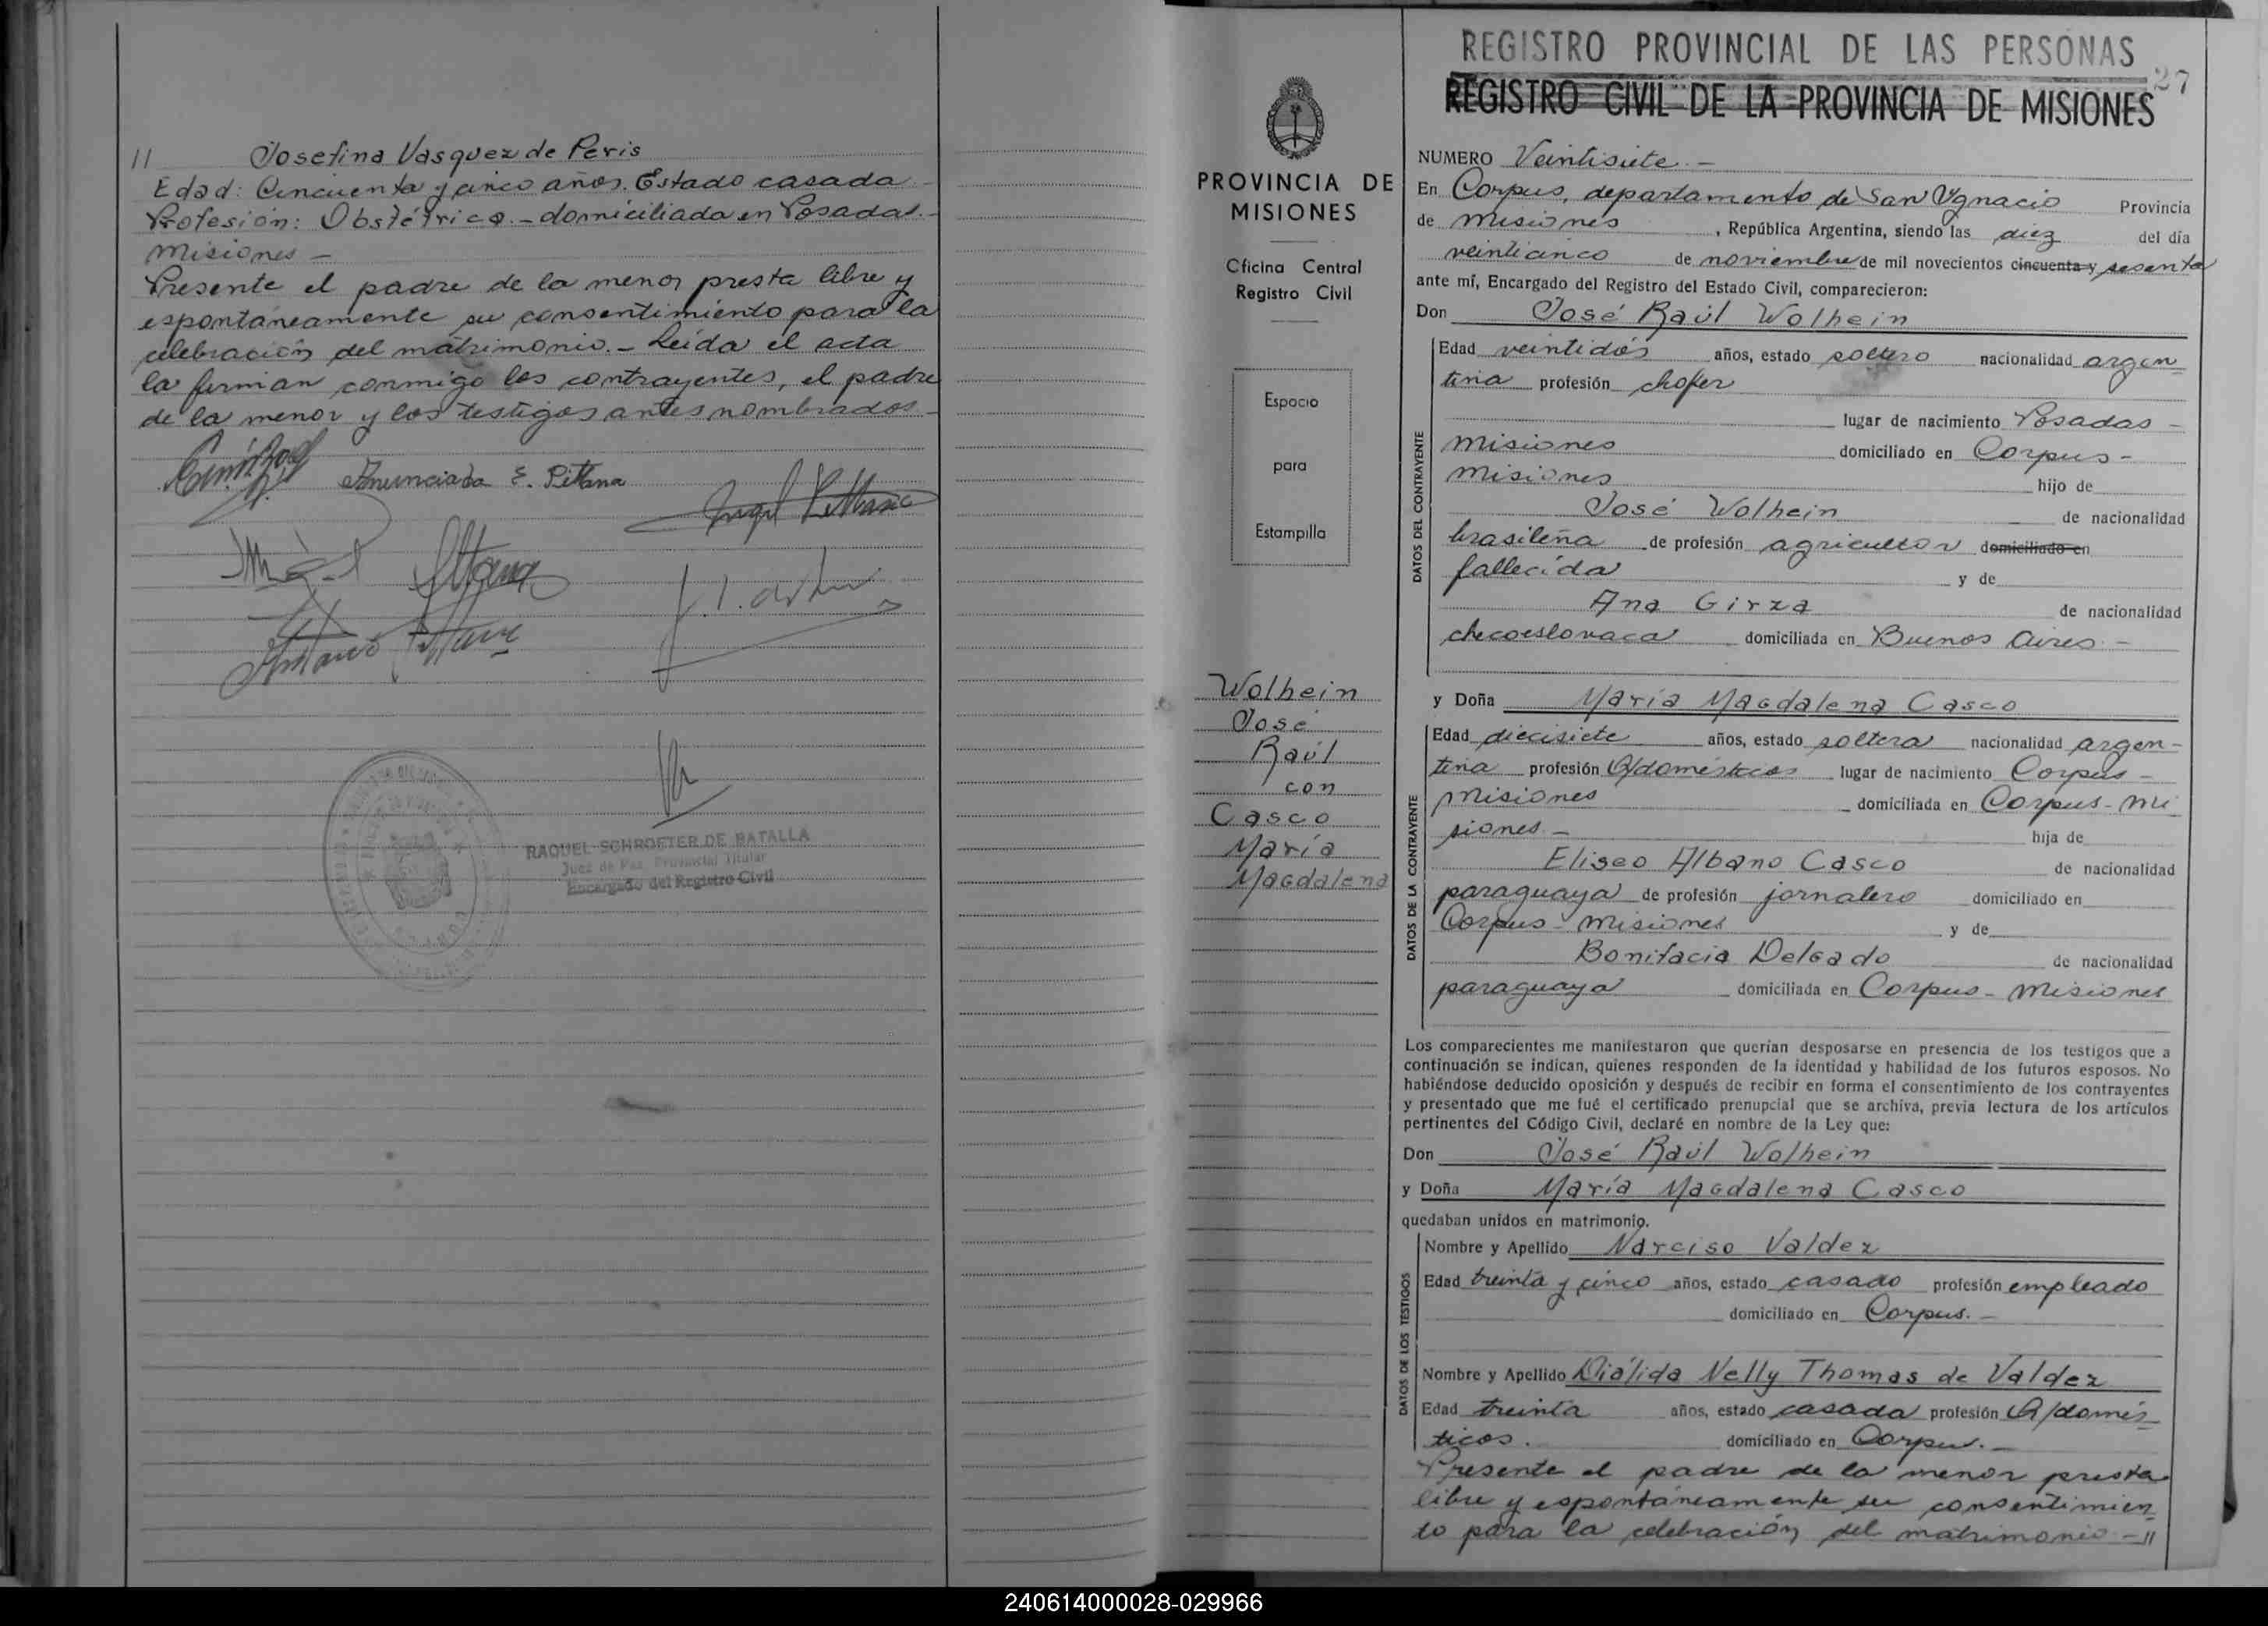 11 Josefina Vasquez de Peris
Edad: Cincuenta y cinco años. Estado casada -
Profesión: Obstétrica. - domiciliada en Posadas. -
Misiones -
Presente el padre de la menor presta libre y
espontáneamente su consentimiento para la
celebración del matrimonio. - Leída el acta
la firman conmigo los contrayentes, el padre
de la menor y los testigos antes nombrados -
Anunciada E. Pittana
RAQUEL SCHROETER DE BATALLA
Juez de Paz Provincial Titular
Encargado del Registro Civil
PROVINCIA DE
MISIONES
Oficina Central
Registro Civil
Espacio
para
Estampilla
Wolhein
José
Raúl
con
Casco
María
Magdalena
REGISTRO PROVINCIAL DE LAS PERSONAS
27
REGISTRO CIVIL DE LA PROVINCIA DE MISIONES
NUMERO Veintisiete. -
En Corpus, departamento de San Ygnacio Provincia
de Misiones, República Argentina, siendo las diez del día
veinticinco de noviembre de mil novecientos cincuenta y sesenta
ante mí, Encargado del Registro del Estado Civil, comparecieron:
Don José Raúl Wolhein
DATOS DEL CONTRAYENTE
Edad veintidós años, estado soltero nacionalidad argen
tina profesión chofer
lugar de nacimiento Posadas -
Misiones domiciliado en Corpus -
Misiones hijo de
José Wolhein de nacionalidad
brasileña de profesión agricultor domiciliado en
fallecida y de
Ana Girza de nacionalidad
checoeslovaca domiciliada en Buenos Aires -
y Doña María Magdalena Casco
DATOS DE LA CONTRAYENTE
Edad diecisiete años, estado soltera nacionalidad argen-
tina profesión Q/domésticos lugar de nacimiento Corpus -
Misiones domiciliada en Corpus - Mi
siones - hija de
Eliseo Albano Casco de nacionalidad
paraguaya de profesión jornalero domiciliado en
Corpus - Misiones y de
Bonifacia Delgado de nacionalidad
paraguaya domiciliada en Corpus - Misiones
Los comparecientes me manifestaron que querían desposarse en presencia de los testigos que a
continuación se indican, quienes responden de la identidad y habilidad de los futuros esposos. No
habiéndose deducido oposición y después de recibir en forma el consentimiento de los contrayentes
y presentado que me fué el certificado prenupcial que se archiva, previa lectura de los artículos
pertinentes del Código Civil, declaré en nombre de la Ley que:
Don José Raúl Wolhein
y Doña María Magdalena Casco
quedaban unidos en matrimonio.
DATOS DE LOS TESTIGOS
Nombre y Apellido Narciso Valdez
Edad treinta y cinco años, estado casado profesión empleado
domiciliado en Corpus. -
Nombre y Apellido Diálida Nelly Thomas de Valdez
Edad treinta años, estado casada profesión Q/domés-
ticos. domiciliado en Corpus. -
Presente el padre de la menor presta
libre y espontáneamente su consentimien
to para la celebración del matrimonio - 11
240614000028-029966